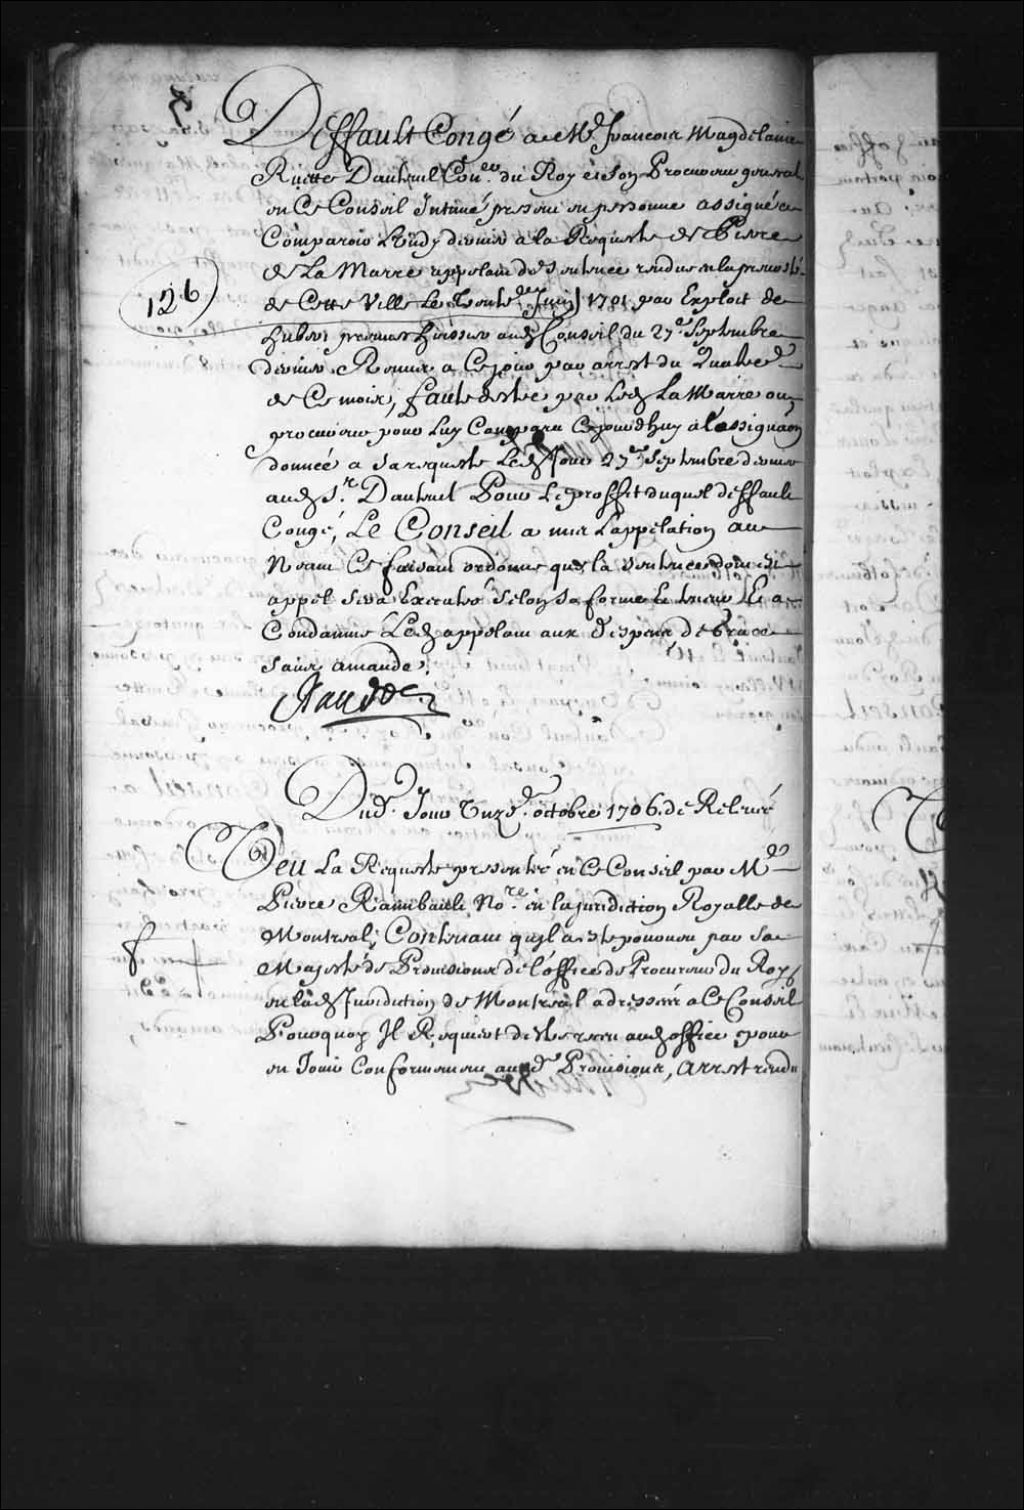 Deffault Congé a Me. francois Magdelaine
Ruette Dauteuil Coner. du Roy et son Procureur general
en Ce Conseil Intimé present en personne assigné a
Comparoir Lundy dernier a la Requeste de Pierre
de La Marre appelant de sentence rendue en la prevosté
126
de Cette Ville Le Trente Juin 1701 par Exploit de
hubert premier huissier aud Conseil du 27e. Septembre
dernier, Remis a Ce jour par arrest du Quatre
de Ce mois, faute destre par Led La Marre ou
procureur pour Luy Comparu Cejourdhuy a lassignaon
donnée a sa requeste Led Jour 27e Septembre dernier
aud Sr. Dauteuil Pour Le proffit duquel deffault
Congé, Le Conseil a mis Lappelation au
Neant Ce faisant ordonne que la sentence dont est
appel sera Executée selon sa forme Et teneur Et a
Condamné Led appelant aux despens, de Grace
sans amande.
Raudot
Dud. Jour Unze. octobre 1706. de Relevée
Veu La Requeste presentée en Ce Conseil par Me
Pierre Raimbault Nore. en la jurisdiction Royalle de
Montreal, Contenant quil a este pourveu par Sa
Majesté de Provisions de l'office de Procureur du Roy
en lad Jurisdiction de Montreal adressées a Ce Conseil
Pourquoy Il Requiert destre receu aud office pour
en Jouir Conformement aud. Provisions, arrest rendu